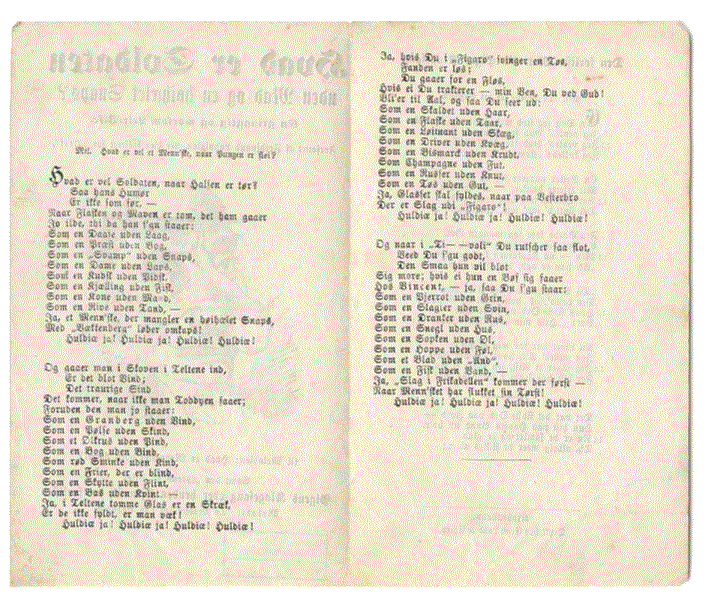 Mel. Hvad er vel et Menn'ske, naar Pungen er flei?
Hvad er vel Soldaten, naar Halsen er tør?
Saa hans Humør
Er ikke som før, —
Naar Flasken og Maven er tom, det ham gaaer
Jo ilde, thi da han s'gu staaer:
Som en Daase uden Laag,
Som en Præst uden Bog,
Som en „Svamp" uden Snaps,
Som en Dame uden Laps,
Som en Kudsk uden Pidsk,
Som en Kjælling uden Fisk,
Som en Kone uden Mand,
Som en Rive uden Tand, —
Ja, et Menn'ske, der mangler en høihælet Snaps,
Med „Bækkenberg" løber omkaps!
Huldiæ ja! Huldiæ ja! Huldiæ! Huldiæ!
Og gaaer man i Skoven i Teltene ind,
Er det blot Vind;
Det traurige Sind
Det kommer, naar ikke man Toddyen faaer;
Foruden den man jo staaer:
Som en Granberg uden Vind,
Som en Pølse uden Skind,
Som et Dikrus uden Pind,
Som en Bog uden Bind,
Som rød Sminke uden Kind,
Som en Frier, der er blind,
Som en Skytte uden Flint,
Som en Bas uden Kvint.
Ja, i Teltene tomme Glas er en Skræk,
Er de ikke fyldt, er man væk!
Huldiæ ja! Huldiæ ja! Huldiæ! Huldiæ!
Ja, hvis Du i „Figaro" svinger en Tøs,
Fanden er løs;
Du gaaer for en Fløs,
Hvis ei Du trakterer — min Ven, Du ved Gud!
Bli'er til Aal, og saa Du seer ud:
Som en Skaldet uden Haar,
Som en Flaske uden Taar,
Som en Løitnant uden Skæg,
Som en Driver uden Kvæg,
Som en Bismarck uden Krudt,
Som Champagne uden Fut,
Som en Russer uden Knut,
Som en Tøs uden Gut, —
Ja, Glasset skal fyldes, naar paa Vesterbro
Der er Slag udi „Figaro"!
Huldiæ ja! Huldiæ ja! Huldiæ! Huldiæ!
Og naar i „Ti— —voli" Du rutscher saa flot,
Veed Du s'gu godt,
Den Smaa hun vil blot
Sig more; hvis ei hun en Bøf sig faaer
Hos Vincent, — ja, saa Du s'gu staaer:
Som en Pjerrot uden Grin,
Som en Slagter uden Svin,
Som en Dranker uden Rus,
Som en Snegl uden Hus,
Som en Sopken uden Øl,
Som en Hoppe uden Føl,
Som et Blad uden „And",
Som en Fisk uden Vand, —
Ja, „Slag i Frikadellen" kommer der først —
Naar Menn'sket har slukket sin Tørst!
Huldiæ ja! Huldiæ ja! Huldiæ! Huldiæ!